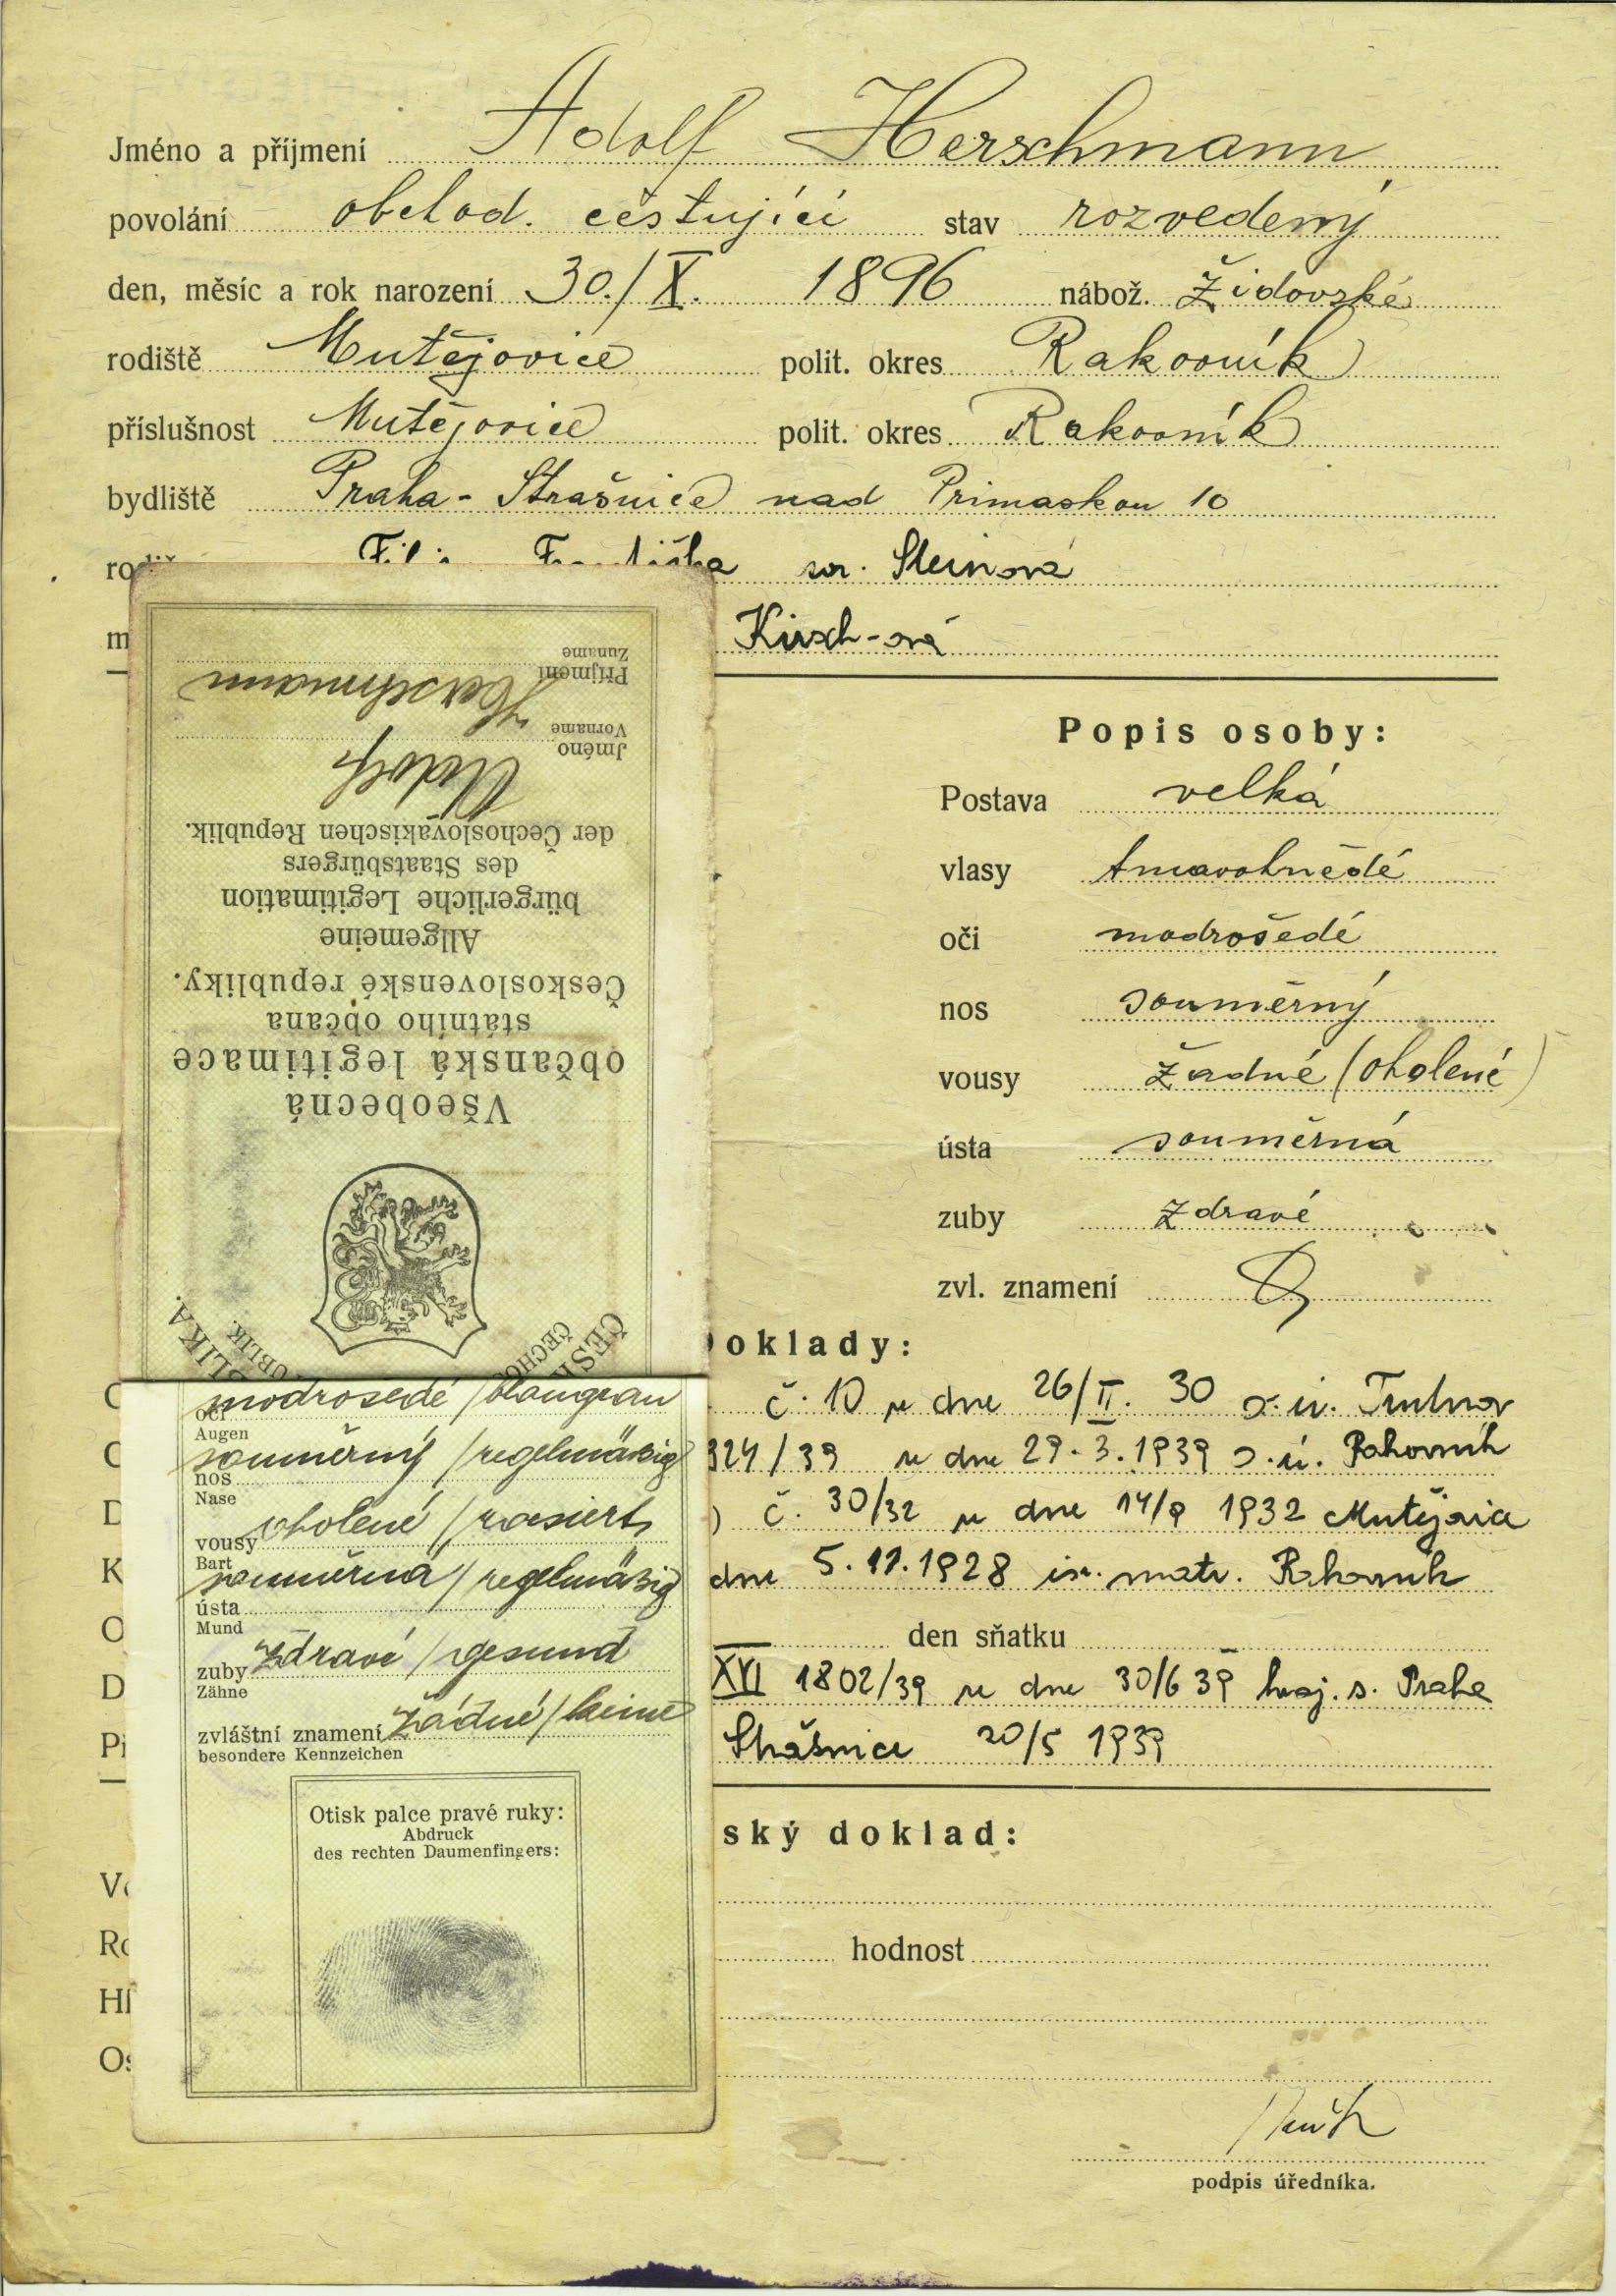 Jméno a příjmení Adolf Herschmann
povolání obchod. cestující stav rozvedený
den, měsíc a rok narození 30./X. 1896 nábož. židovské
rodiště Mutějovice polit. okres Rakovník
příslušnost Mutějovice polit. okres Rakovník
bydliště Praha - Strašnice nad Primaskou 10
roz. Steinová
Kirsch-ová
Příjmení Herschmann
Zuname
Jméno Adolf
Vorname
der Čechoslovakischen Republik.
des Staatsbürgers
bürgerliche Legitimation
Allgemeine
Československé republiky.
státního občana
občanská legitimace
Všeobecná
Popis osoby:
Postava velká
vlasy tmavohnědé
oči modrošedé
nos souměrný
vousy žádné (oholené)
ústa souměrná
zuby zdravé
zvl. znamení
oklady:
č. 10 ze dne 26/II. 30 o. ú. Trutnov
324/39 ze dne 29.3.1939 o. ú. Rakovník
) č. 30/32 ze dne 14/9 1932 Mutějovice
dne 5.11.1928 isr. matr. Rakovník
den sňatku
XVI 1802/39 ze dne 30/6 39 kraj. s. Praha
Strašnice 20/5 1939
modrošedé / blaugrau
oči
Augen
souměrný / regelmäßig
nos
Nase
oholené / rasiert
vousy
Bart
souměrná / regelmäßig
ústa
Mund
zuby zdravé / gesund
Zähne
zvláštní znamení žádné / keine
besondere Kennzeichen
Otisk palce pravé ruky:
Abdruck
des rechten Daumenfingers:
ský doklad:
hodnost
podpis úředníka.